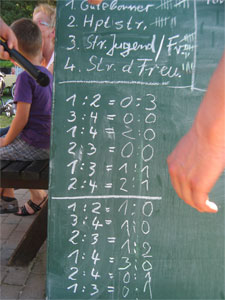 1. Gutsbonner
2. Hptstr.
3. Str. Jugend / Fr
4. Str. d Freu.
1:2 = 0:3
3:4 = 0:0
1:4 = 2:0
2:3 = 0:0
1:3 = 1:1
2:4 = 2:1
1:2 = 1:0
3:4 = 1:0
2:3 = 1:2
1:4 = 3:0
2:4 = 0:1
1:3 = 0:0